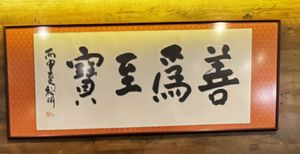 善為至寶
丙申夏